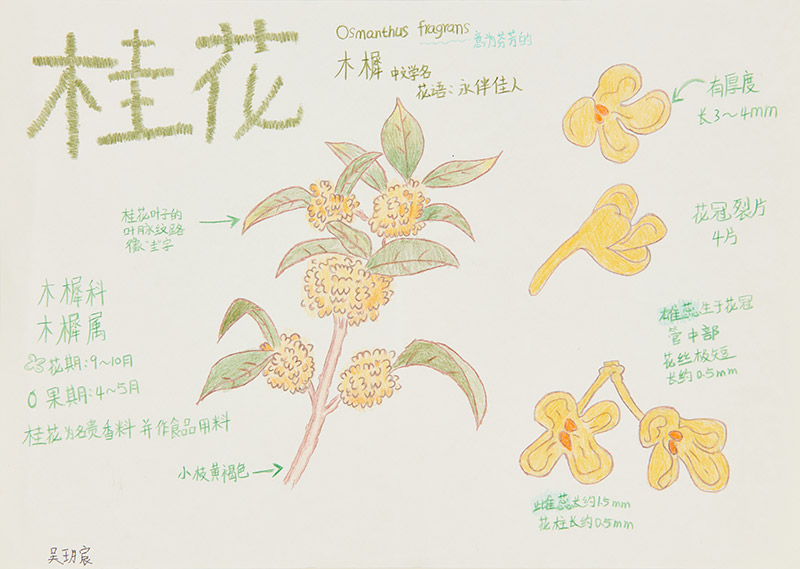 桂花
Osmanthus fragrans
意为芬芳的
木樨 中文学名
花语：永伴佳人
有厚度
长3～4mm
桂花叶子的
叶脉纹路
像"圭"字
花冠裂片
4片
木樨科
木樨属
花期：9～10月
果期：4～5月
桂花为名贵香料 并作食品用料
雄蕊生于花冠
管中部
花丝极短
长约0.5mm
小枝黄褐色
雌蕊长约1.5mm
花柱长约0.5mm
吴玥宸